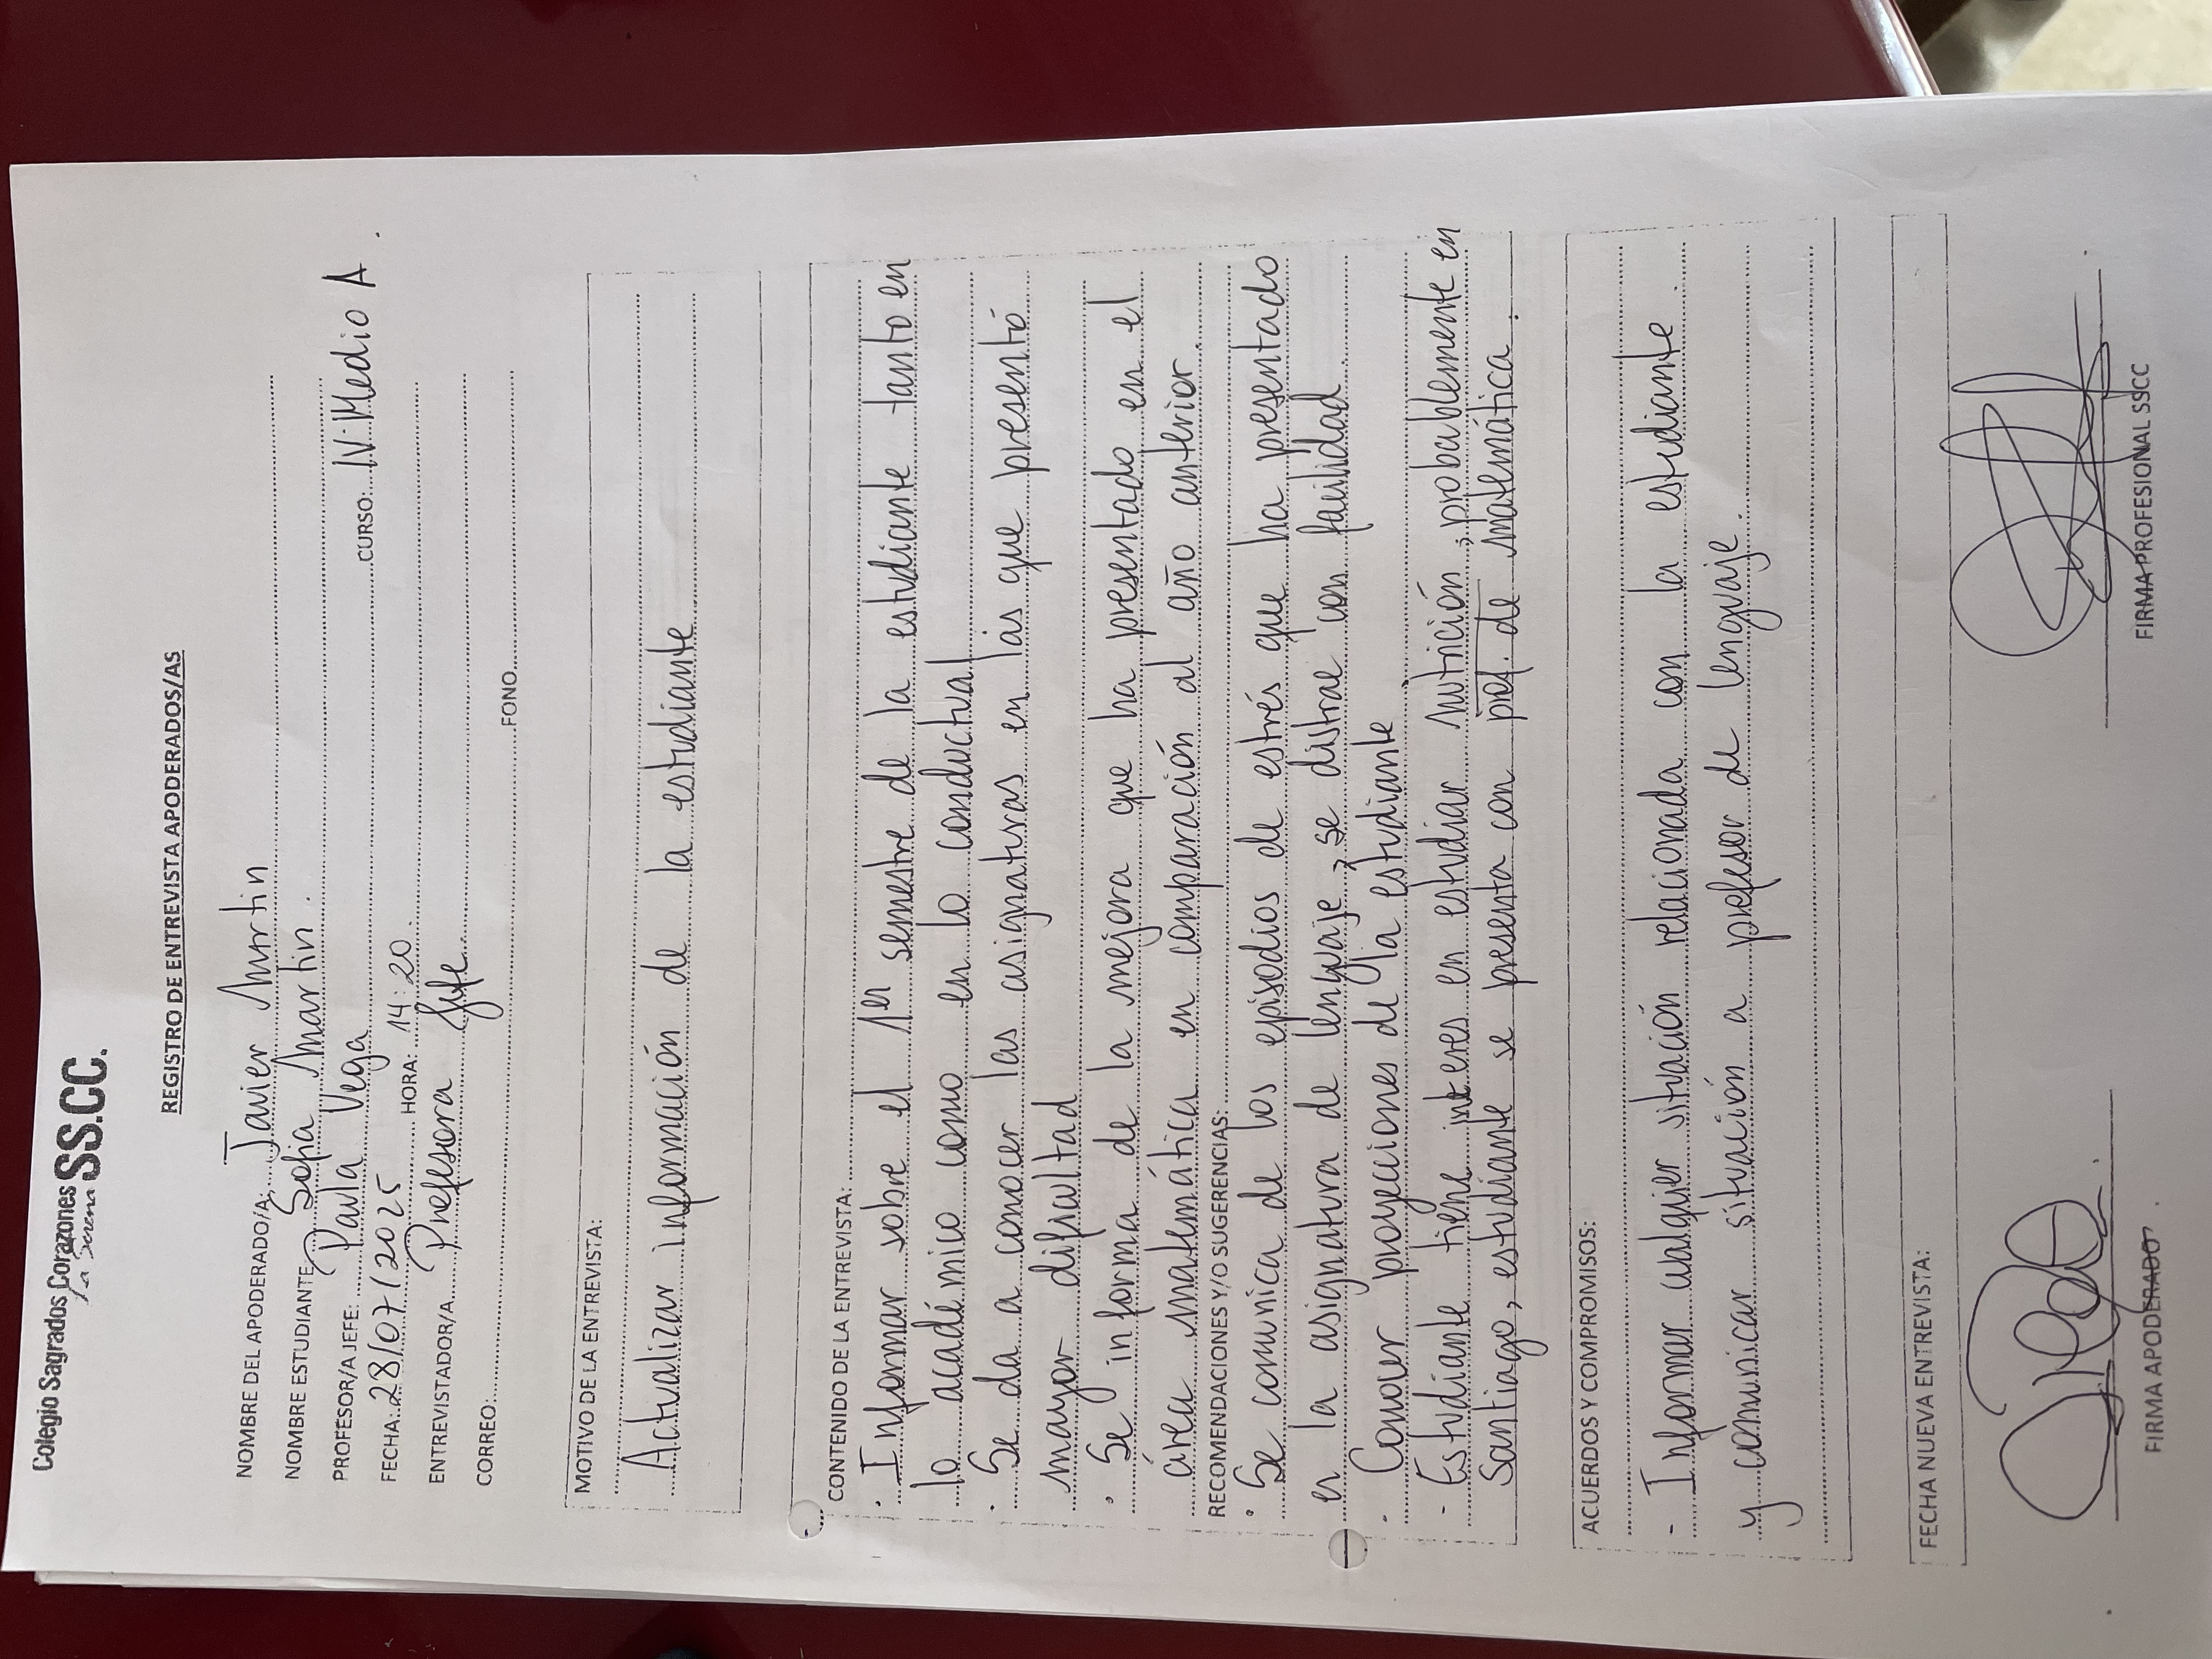 Colegio Sagrados Corazones SS.CC.
La Serena
REGISTRO DE ENTREVISTA APODERADOS/AS
NOMBRE DEL APODERADO/A: Javier Martin
NOMBRE ESTUDIANTE: Sofia Martin.
PROFESOR/A JEFE: Paula Vega CURSO: IV Medio A.
FECHA: 28/07/2025 HORA: 14:20.
ENTREVISTADOR/A: Profesora Jefe.
CORREO: FONO
MOTIVO DE LA ENTREVISTA:
Actualizar información de la estudiante
CONTENIDO DE LA ENTREVISTA:
· Informar sobre el 1er semestre de la estudiante tanto en
lo académico como en lo conductual
· Se da a conocer las asignaturas en las que presentó
mayor dificultad
· Se informa de la mejora que ha presentado en el
área matemática en comparación al año anterior.
RECOMENDACIONES Y/O SUGERENCIAS:
· Se comunica de los episodios de estrés que ha presentado
en la asignatura de lenguaje, se distrae con facilidad.
· Conocer proyecciones de la estudiante
- Estudiante tiene interes en estudiar nutrición, probablemente en
Santiago, estudiante se presenta con prof. de matemática.
ACUERDOS Y COMPROMISOS:
- Informar cualquier situación relacionada con la estudiante.
y comunicar situación a profesor de lenguaje.
FECHA NUEVA ENTREVISTA:
FIRMA APODERADO
FIRMA PROFESIONAL SSCC